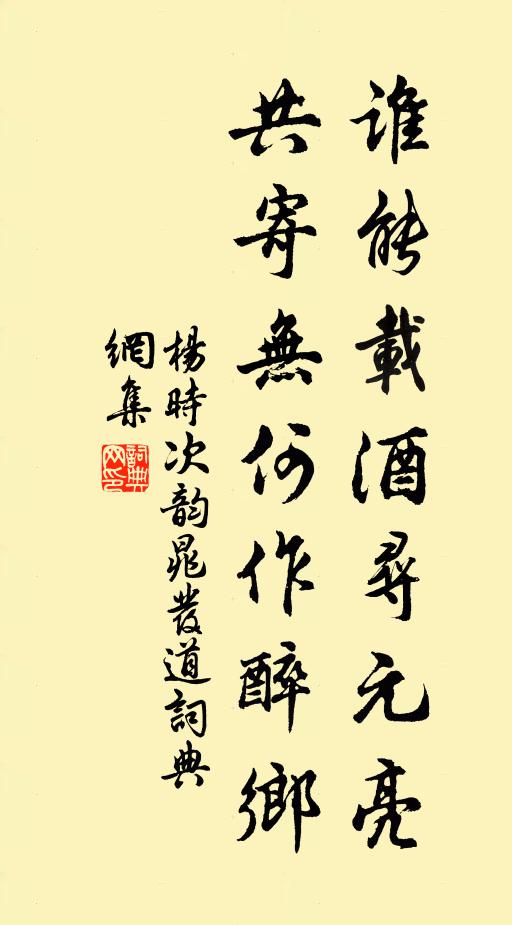 誰能載酒尋元亮
共寄無何作醉鄉
楊時次韵晁發道詞典
網集
詞典
网印